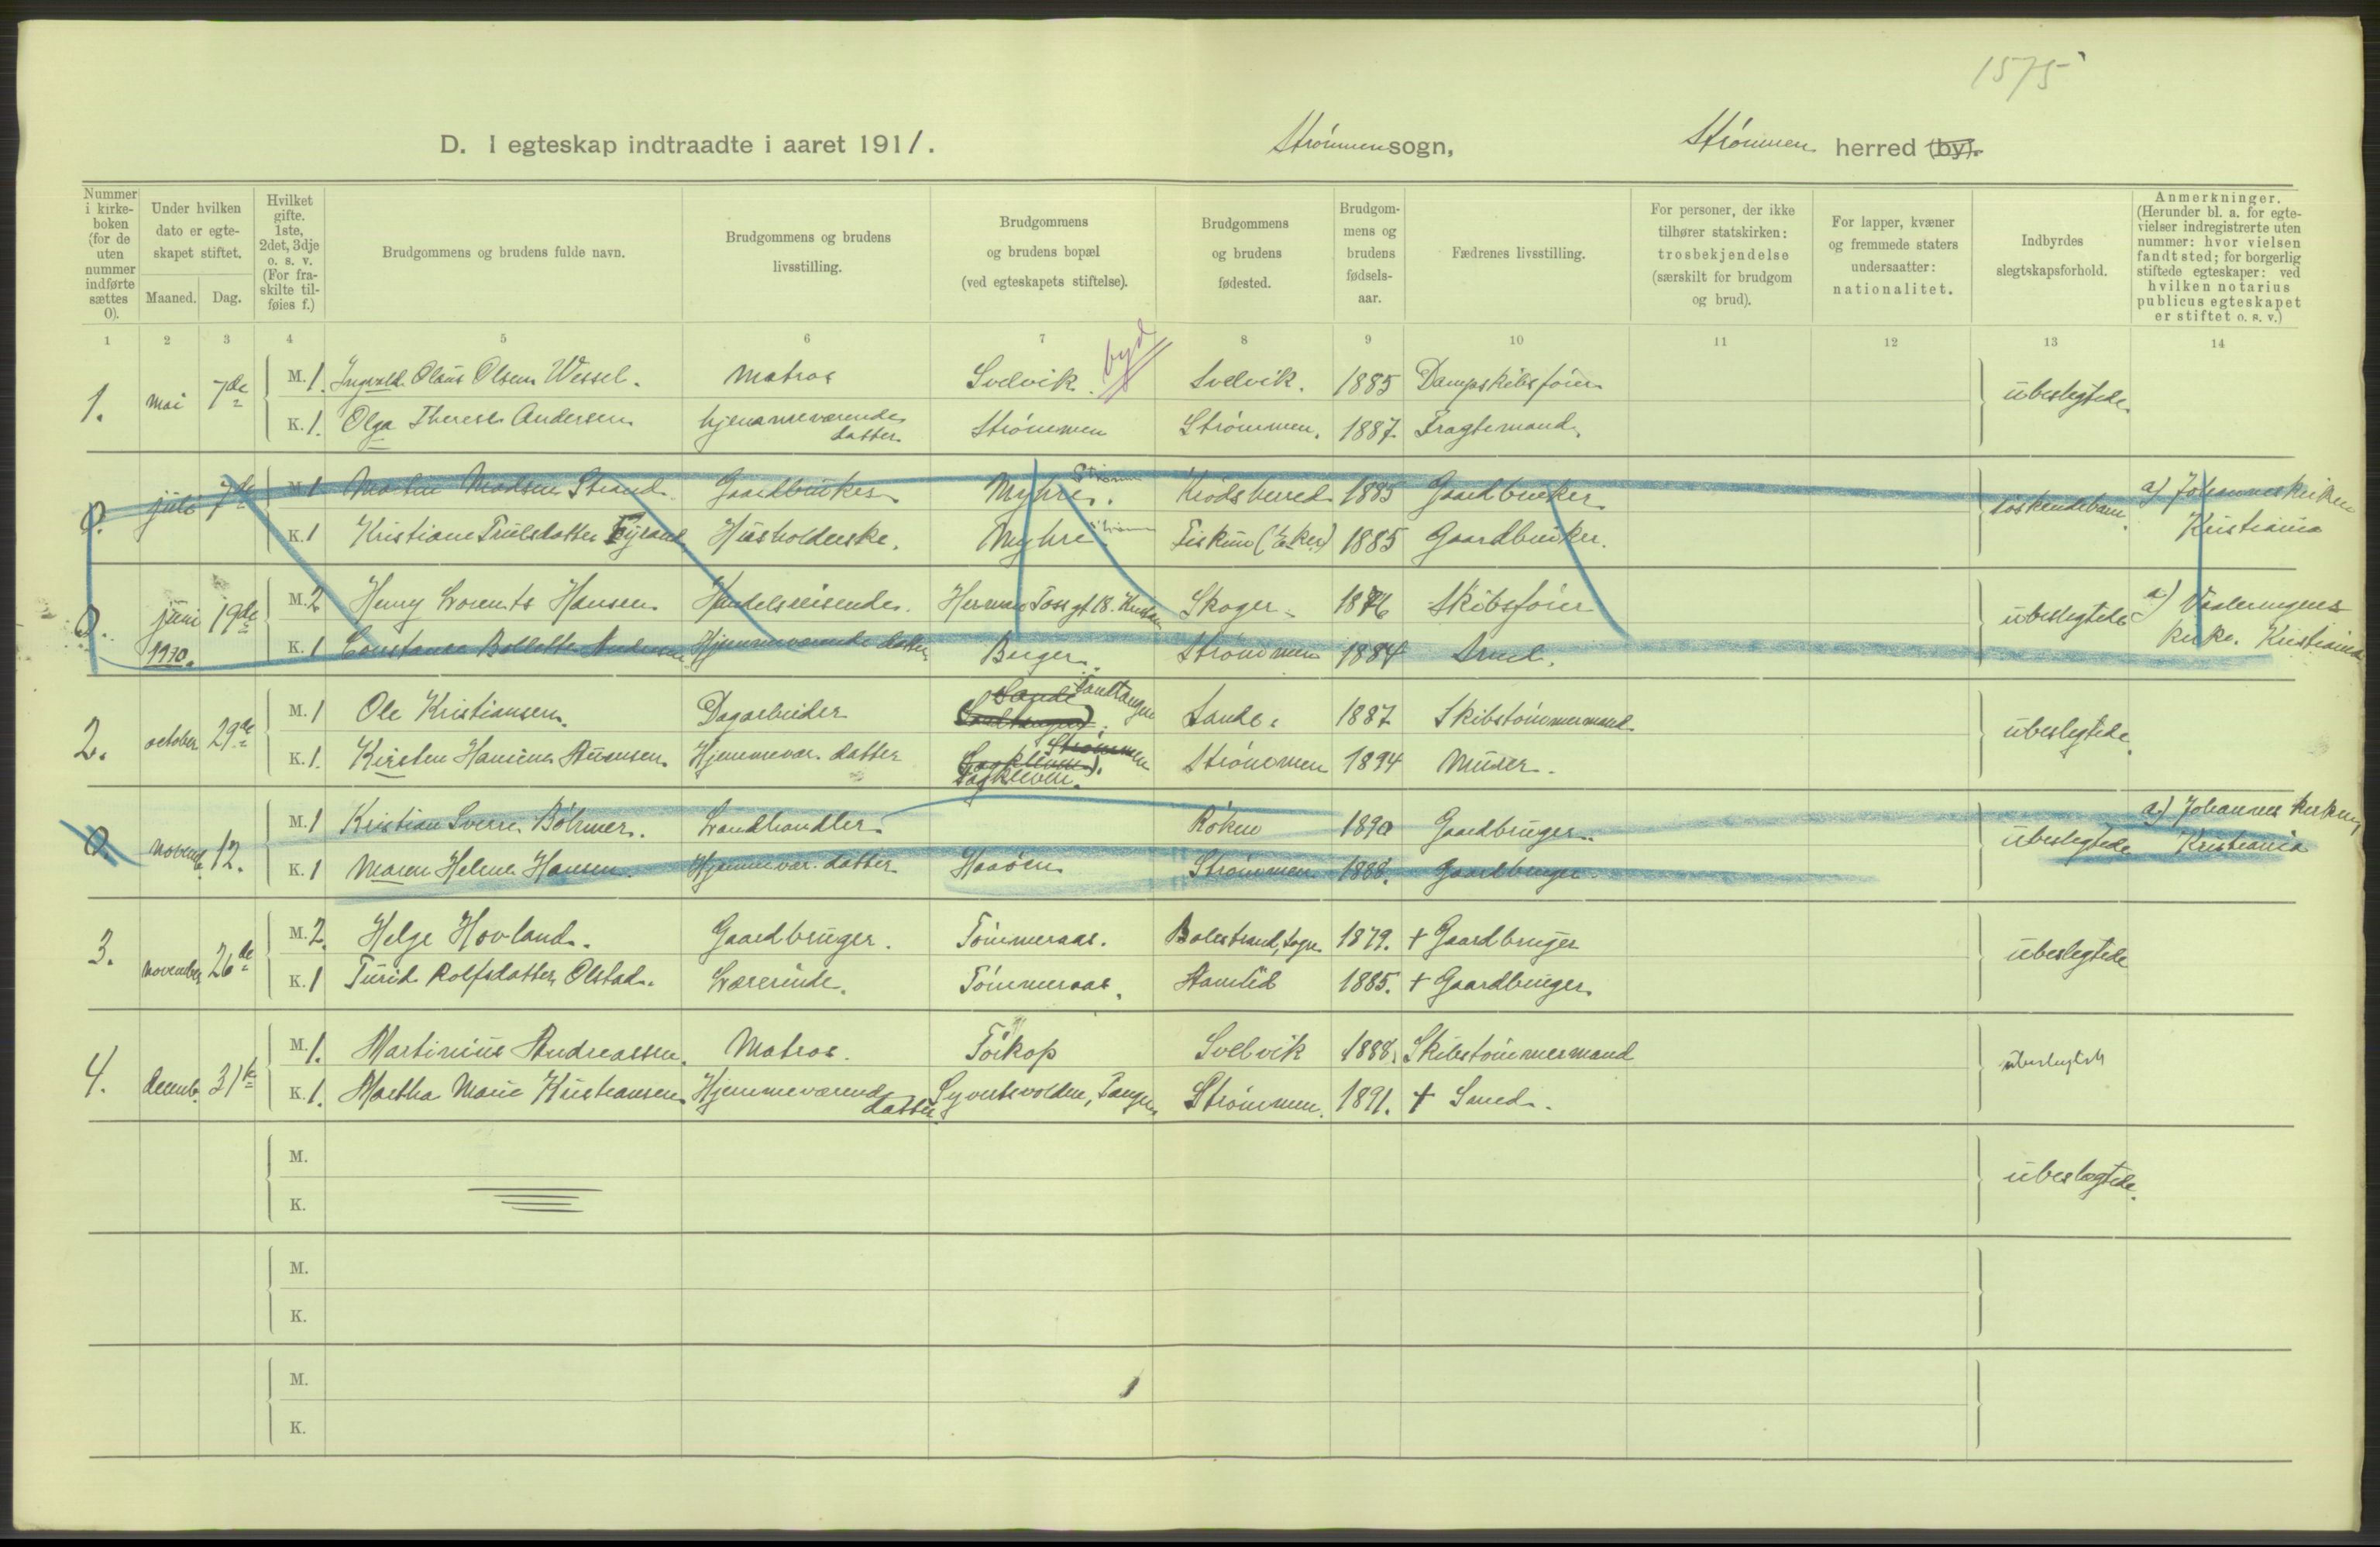 1575
D. I egteskap indtraadte i aaret 1911. Strømmen sogn, Strømmen herred (by).
Nummer i kirkeboken (for de uten nummer indførte sættes 0).
Under hvilken dato er egteskapet stiftet.
Maaned. Dag.
Hvilket gifte. 1ste, 2det, 3dje o. s. v. (For fraskilte tilføies f.)
Brudgommens og brudens fulde navn.
Brudgommens og brudens livsstilling.
Brudgommens og brudens bopæl (ved egteskapets stiftelse).
Brudgommens og brudens fødested.
Brudgommens og brudens fødselsaar.
Fædrenes livsstilling.
For personer, der ikke tilhører statskirken: trosbekjendelse (særskilt for brudgom og brud).
For lapper, kvæner og fremmede staters undersaatter: nationalitet.
Indbyrdes slegtskapsforhold.
Anmerkninger. (Herunder bl. a. for egtevielser indregistrerte uten nummer: hvor vielsen fandt sted; for borgerlig stiftede egteskaper: ved hvilken notarius publicus egteskapet er stiftet o. s. v.)
1 2 3 4 5 6 7 8 9 10 11 12 13 14
1. mai 7de M. 1. Ingvald Olaus Olsen Wessel. Matros Svelvik. byd Svelvik. 1885 Dampskibsfører ubeslegtede
K. 1. Olga Therese Andersen hjemmeværende datter Strømmen Strømmen. 1887 Fragtemand.
0. juli 7de M. 1 Martin Madsen Strand Gaardbruker Myhre. Strøm Krødsherred 1885 Gaardbruker søskendebarn a) Johanneskirken
K. 1 Kristiane Trulsdatter Husholderske. Myhre Strøm Fiskum (Eker) 1885 Gaardbruker. Kristiania
0. juni 19de M. 2 Henry Lorents Hansen Handelsreisende. Skoger 1876 Skibsfører ubeslegtede a) Vaalerengens
1910. K. 1 Constance Andersen Hjemmeværende datter Berger. Strømmen 1884 Smed. kirke. Kristiania
2. october 29de M. 1 Ole Kristiansen. Dagarbeider Sande Sandtangen Sande. 1887 Skibstømmermand ubeslegtede
K. 1. Kirsten Hansine Hjemmevær. datter Strømmen Strømmen 1894 Murer.
0. novemb. 12. M. 1 Kristian Sverre Bøhmer. Landhandler. Røken 1890 Gaardbruger. ubeslegtede a) Johannes kirken,
K. 1 Maren Helene Hansen. Hjemmevær. datter Haaøen Strømmen 1888. Gaardbruger. Kristiania
3. november 26de M. 2. Helge Hovland. Gaardbruger. Tømmeraas. Balestrand, Sogn 1879. + Gaardbruger ubeslegtede
K. 1 Turid Rolfsdatter Olstad. Lærerinde. Tømmeraas. 1885. + Gaardbruger.
4. decemb. 31te M. 1. Martinius Andreassen. Matros. Tørkop Svelvik 1888. Skibstømmermand ubeslegtet
K. 1. Martha Marie Kristiansen Hjemmeværende datter Syvertsvolden, Tangen Strømmen. 1891. + Smed.
M. ubeslegtede.
K.
M.
K.
M.
K.